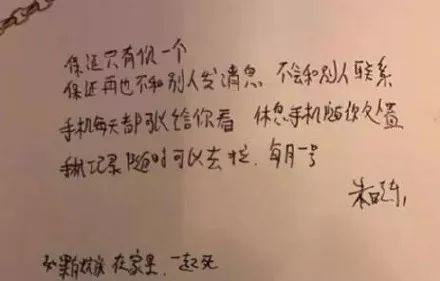 保证只有你一个
保证再也不和别人发消息 不会和别人联系
手机每天都可以给你看 休息手机随你处置
手机记录随时可以去拉,每月一号
朱晓东
如果 在家里,一起死